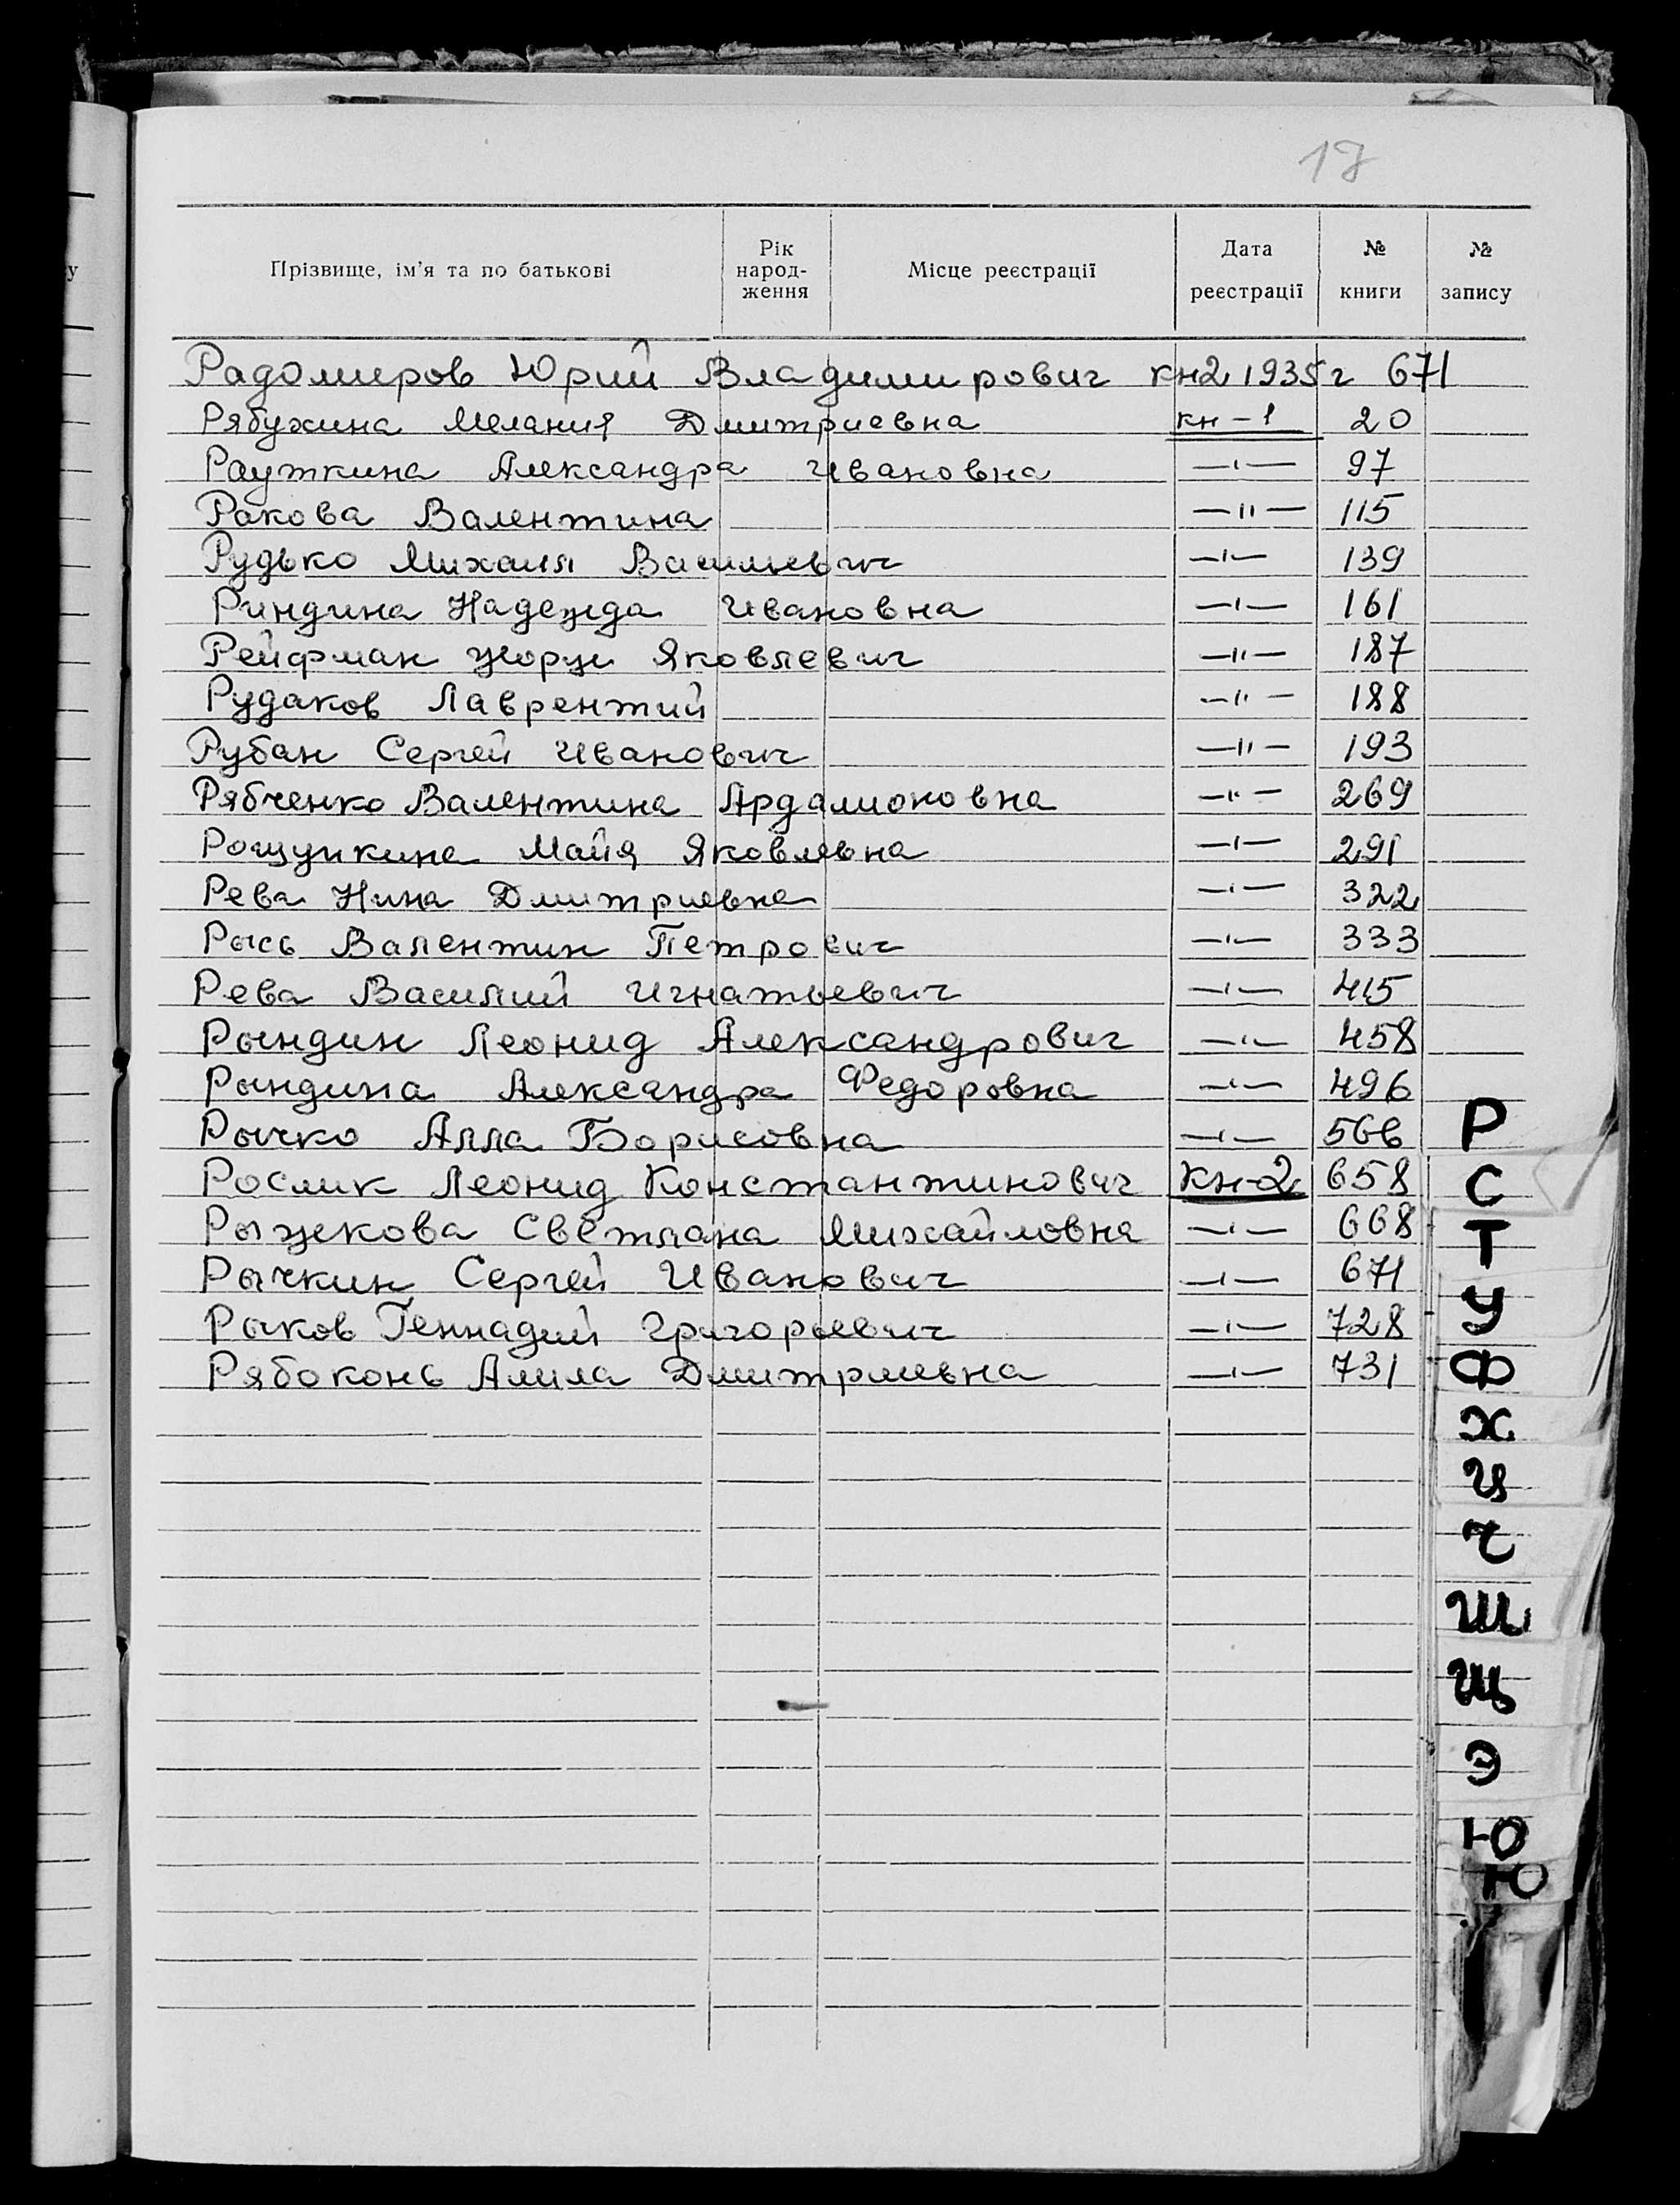 17
Прізвище, ім'я та по батькові Рік народ-ження Місце реєстрації Дата реєстрації № книги № запису
Радомиров Юрий Владимирович кн2 1935г 671
Рябухина Мелания Дмитриевна кн-1 20
Рауткина Александра Ивановна —"— 97
Ракова Валентина —"— 115
Рудько Михаил Васильевич —"— 139
Риндина Надежда Ивановна —"— 161
Рейфман Жорж Яковлевич —"— 187
Рудаков Лаврентий —"— 188
Рубан Сергей Иванович —"— 193
Рябченко Валентина Ардалионовна —"— 269
Рощупкина Майя Яковлевна —"— 291
Рева Нина Дмитриевна —"— 322
Рысь Валентин Петрович —"— 333
Рева Василий Игнатьевич —"— 415
Рындин Леонид Александрович —"— 458
Рындина Александра Федоровна —"— 496
Рычко Алла Борисовна —"— 566
Рослик Леонид Константинович кн-2 658
Рыжкова Светлана Михайловна —"— 668
Рычкин Сергей Иванович —"— 671
Рыков Геннадий Григорьевич —"— 728
Рябоконь Алила Дмитриевна —"— 731
Р
С
Т
У
Ф
Х
Ц
Ч
Ш
Щ
Э
Ю
Ю